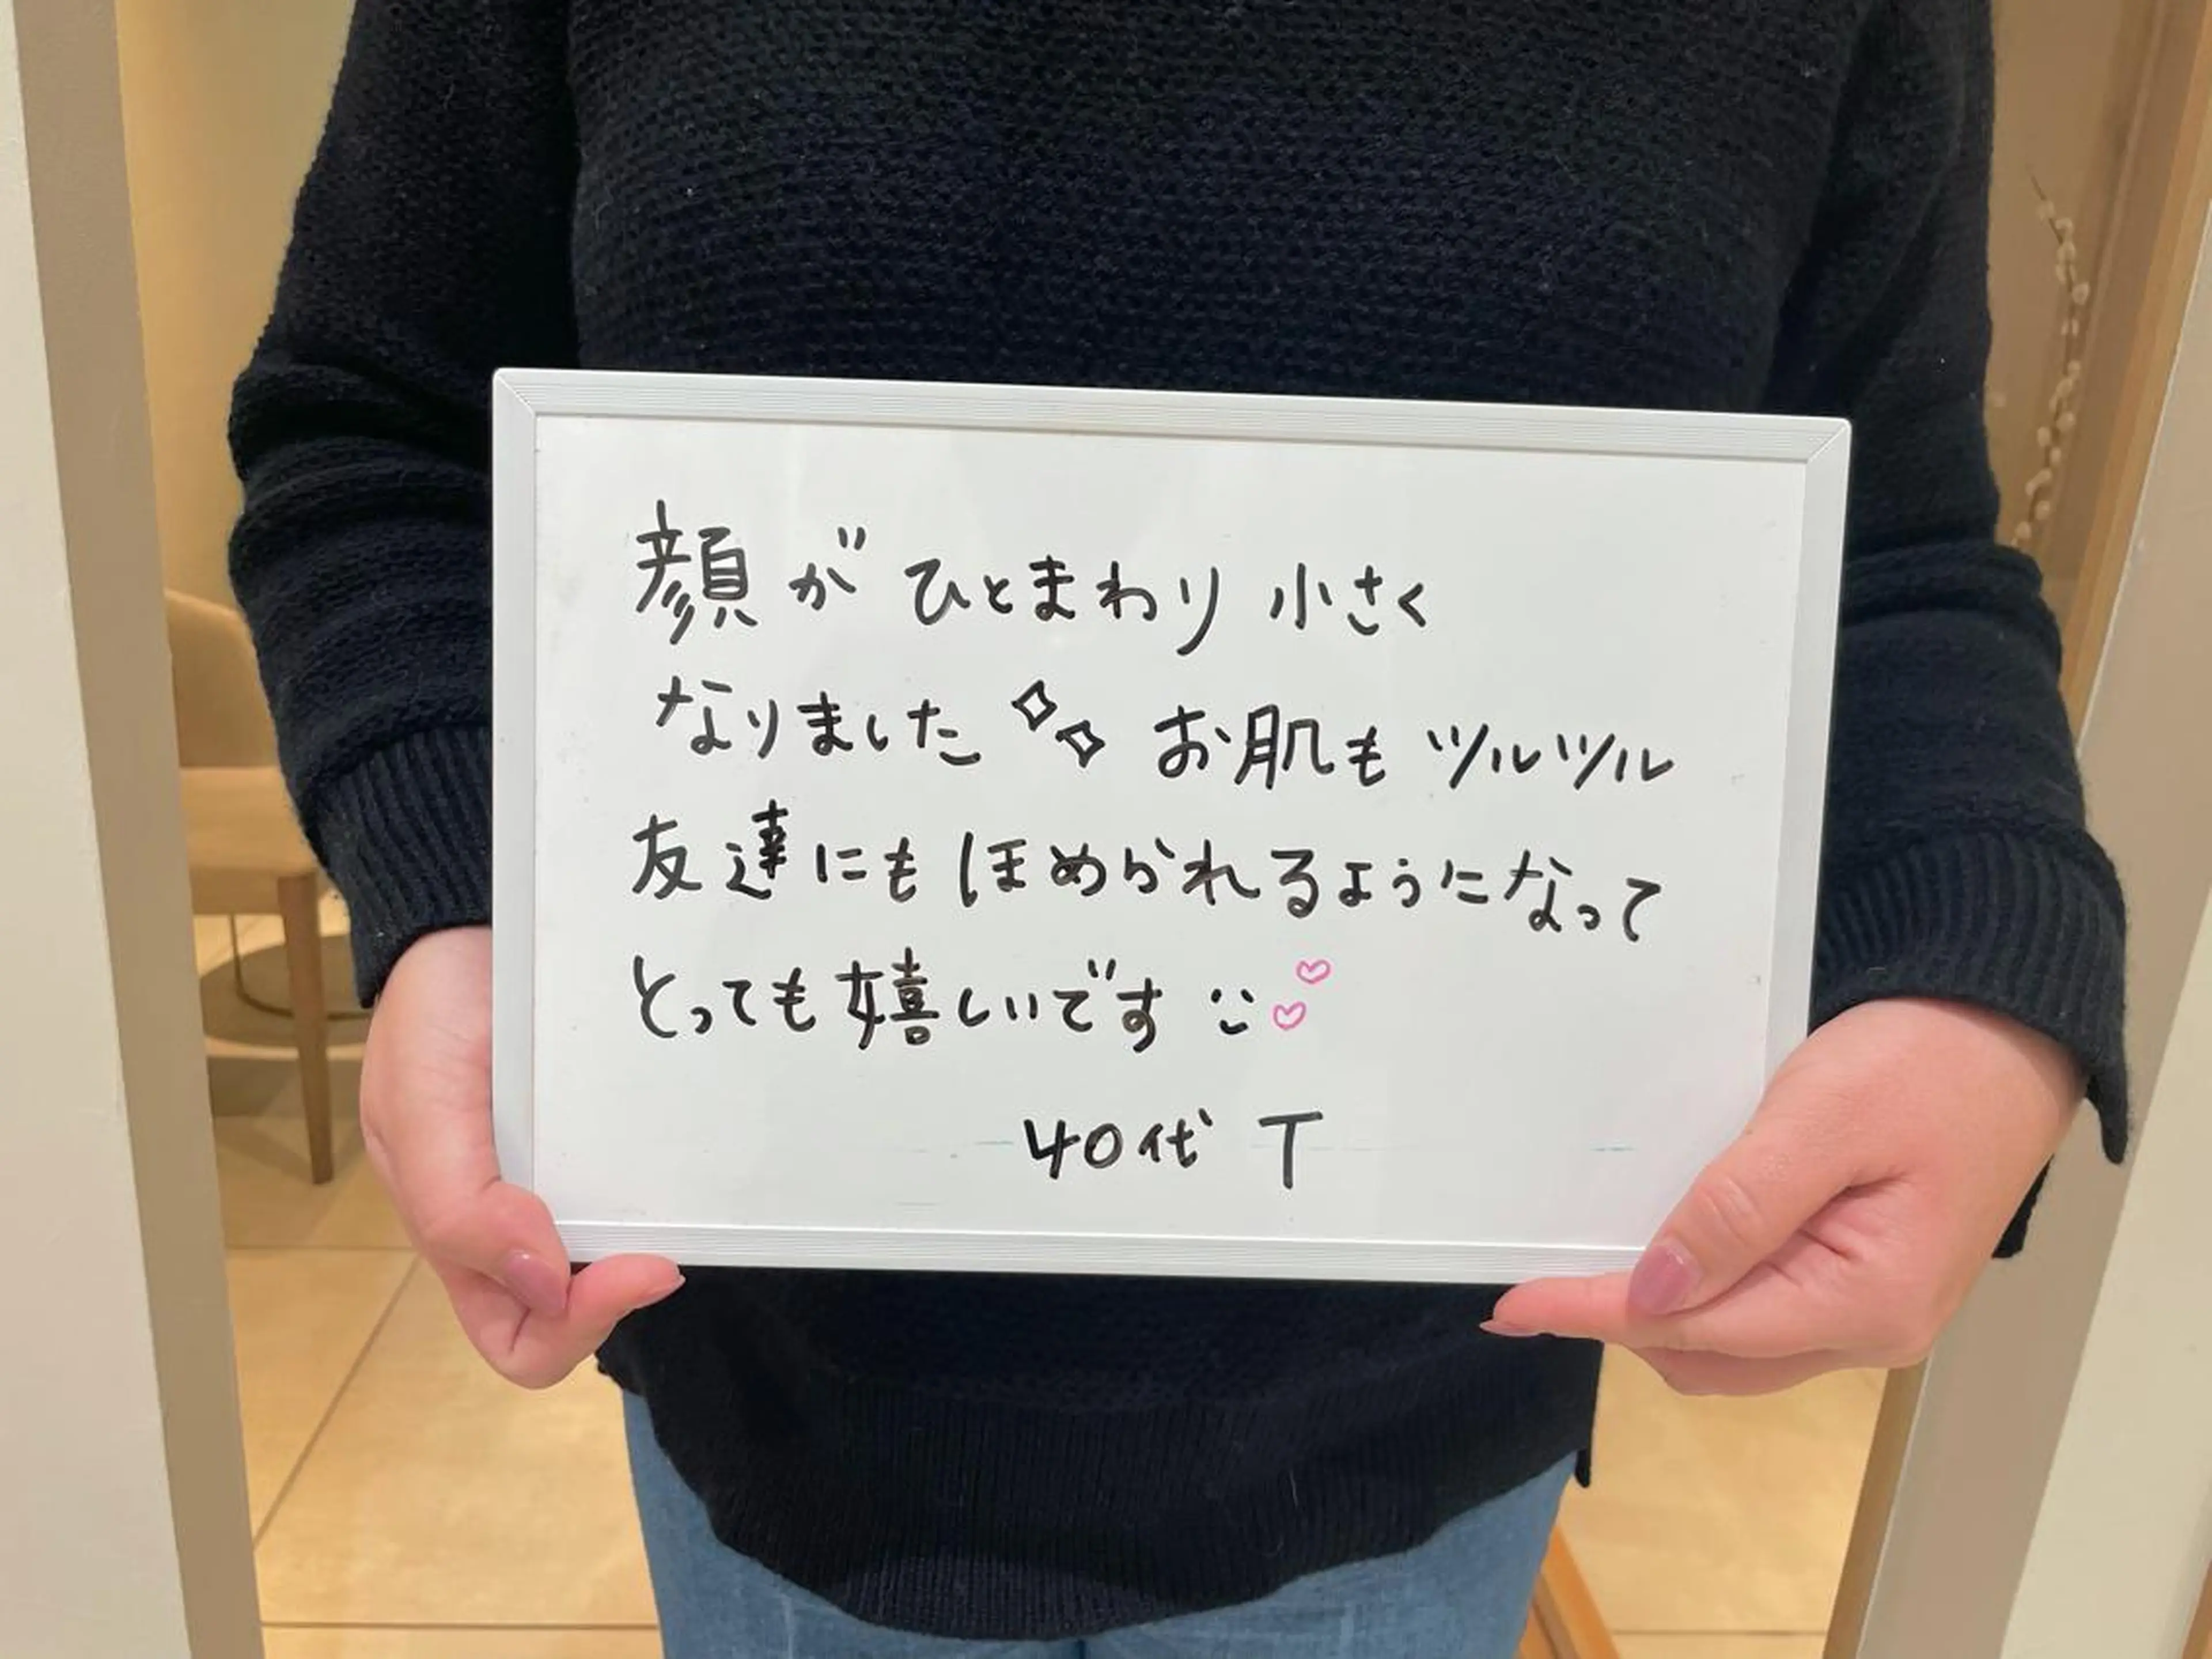 顔がひとまわり小さく
なりました✧✧ お肌もツルツル
友達にもほめられるようになって
とっても嬉しいです
40代 T